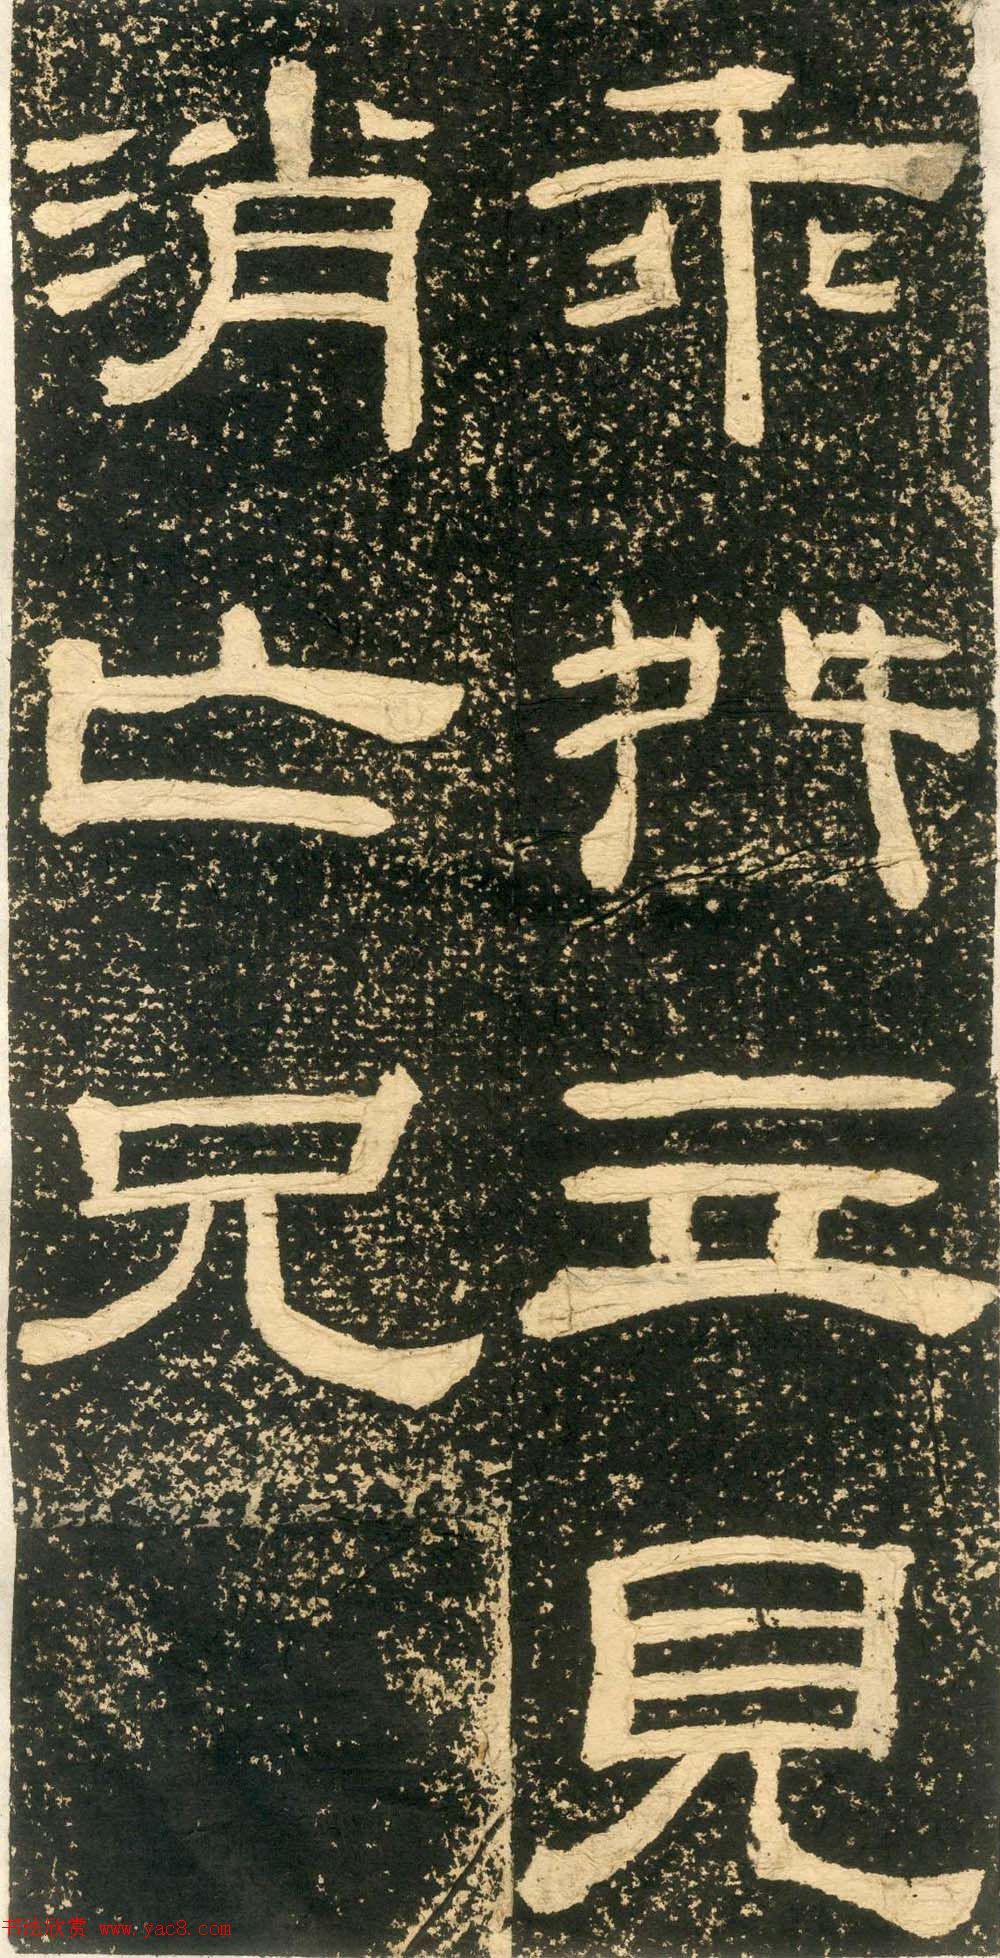 乖鬥立見
消亡兄
书法欣赏 www.yac8.com